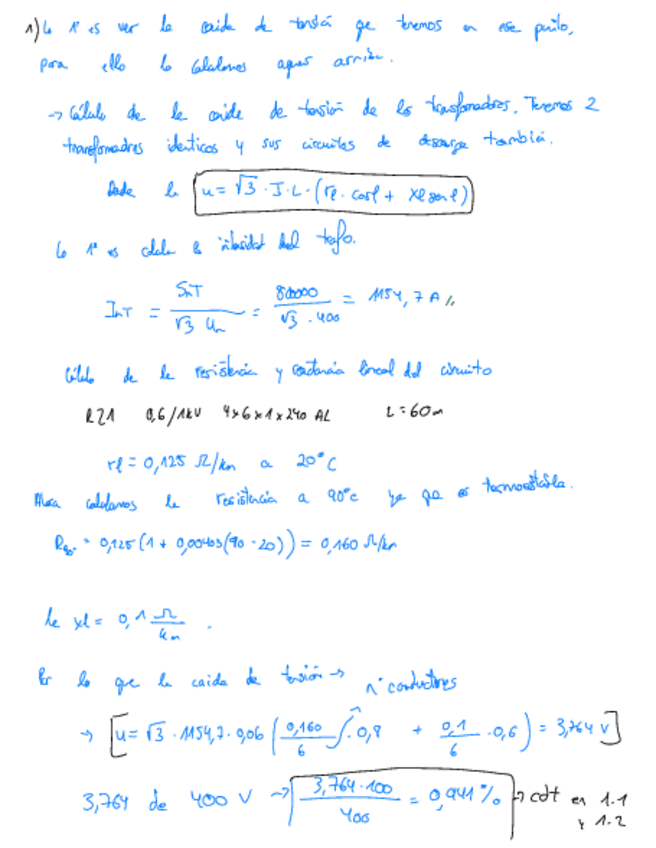 1) Lo 1º es ver la caida de tensión que tenemos en ese punto,
para ello lo calculamos aguas arriba.
→ Cálculo de la caida de tensión de los transformadores. Tenemos 2
transformadores identicos y sus circuitos de descarga también.
Dada la u = √3 · I · L · (rl · cosφ + Xl senφ)
Lo 1º es calcular la intensidad del trafo.
InT = SnT / √3 Un = 800000 / √3 · 400 = 1154,7 A //
Cálculo de la resistencia y reactancia lineal del circuito
RZ1 0,6/1kV 4x6x1x240 AL L = 60m
rl = 0,125 Ω/km a 20°C
Ahora calculamos la resistencia a 90°c ya que es termoestable.
R90° = 0,125 (1 + 0,00403 (90 - 20)) = 0,160 Ω/km
la xl = 0,1 Ω/km .
Por lo que la caida de tensión → nº conductores
→ [u = √3 · 1154,7 · 0,06 (0,160/6 · 0,8 + 0,1/6 · 0,6) = 3,764 V]
3,764 de 400 V → 3,764 · 100 / 400 = 0,941 % → cdt en 1.1
y 1.2